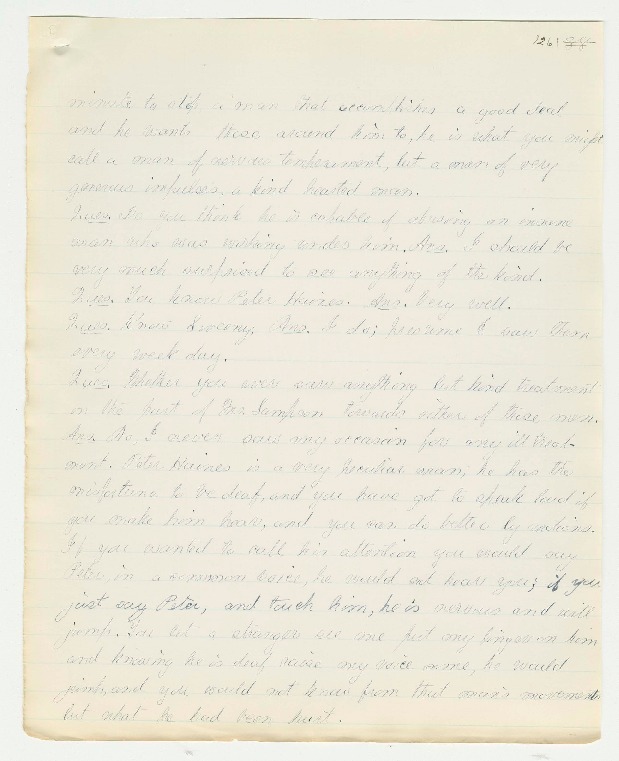 1261
minute to stop, a man that accomplishes a good deal
and he wants those around him to, he is what you might
call a man of nervous temperament, but a man of very
generous impulses, a kind hearted man.
Ques. Do you think he is capable of abusing an insane
man who was working under him. Ans. I should be
very much surprised to see anything of the kind.
Ques. You know Peter Haines. Ans. Very well.
Ques. Know Sweeny, Ans. I do; presume I saw them
every week day.
Ques. Whether you ever saw anything but kind treatment
on the part of Mr. Sampson towards either of those men.
Ans. No, I never saw any occasion for any ill treat-
ment. Peter Haines is a very peculiar man; he has the
misfortune to be deaf, and you have got to speak loud if
you make him hear, and you can do better by motions.
If you wanted to call his attention you would say
Peter, in a common voice, he would not hear you; if you
just say Peter, and touch him, he is nervous and will
jump. You let a stranger see me put my finger on him
and knowing he is deaf raise my voice some, he would
jump, and you would not know from that man's movements
but what he had been hurt.